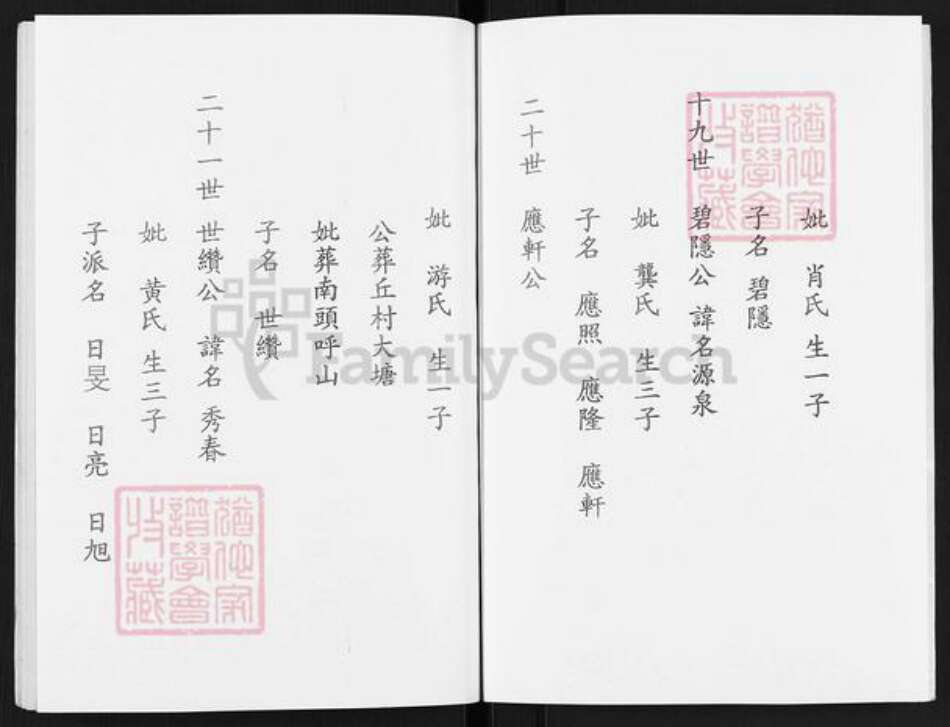 妣 肖氏 生一子
子名 碧隱
十九世 碧隱公 諱名源泉
妣 龔氏 生三子
子名 應照 應隆 應軒
二十世 應軒公
妣 游氏 生一子
公葬丘村大塘
妣葬南頭呼山
子名 世纘
二十一世 世纘公 諱名 秀春
妣 黄氏 生三子
子派名 日旻 日亮 日旭
FamilySearch